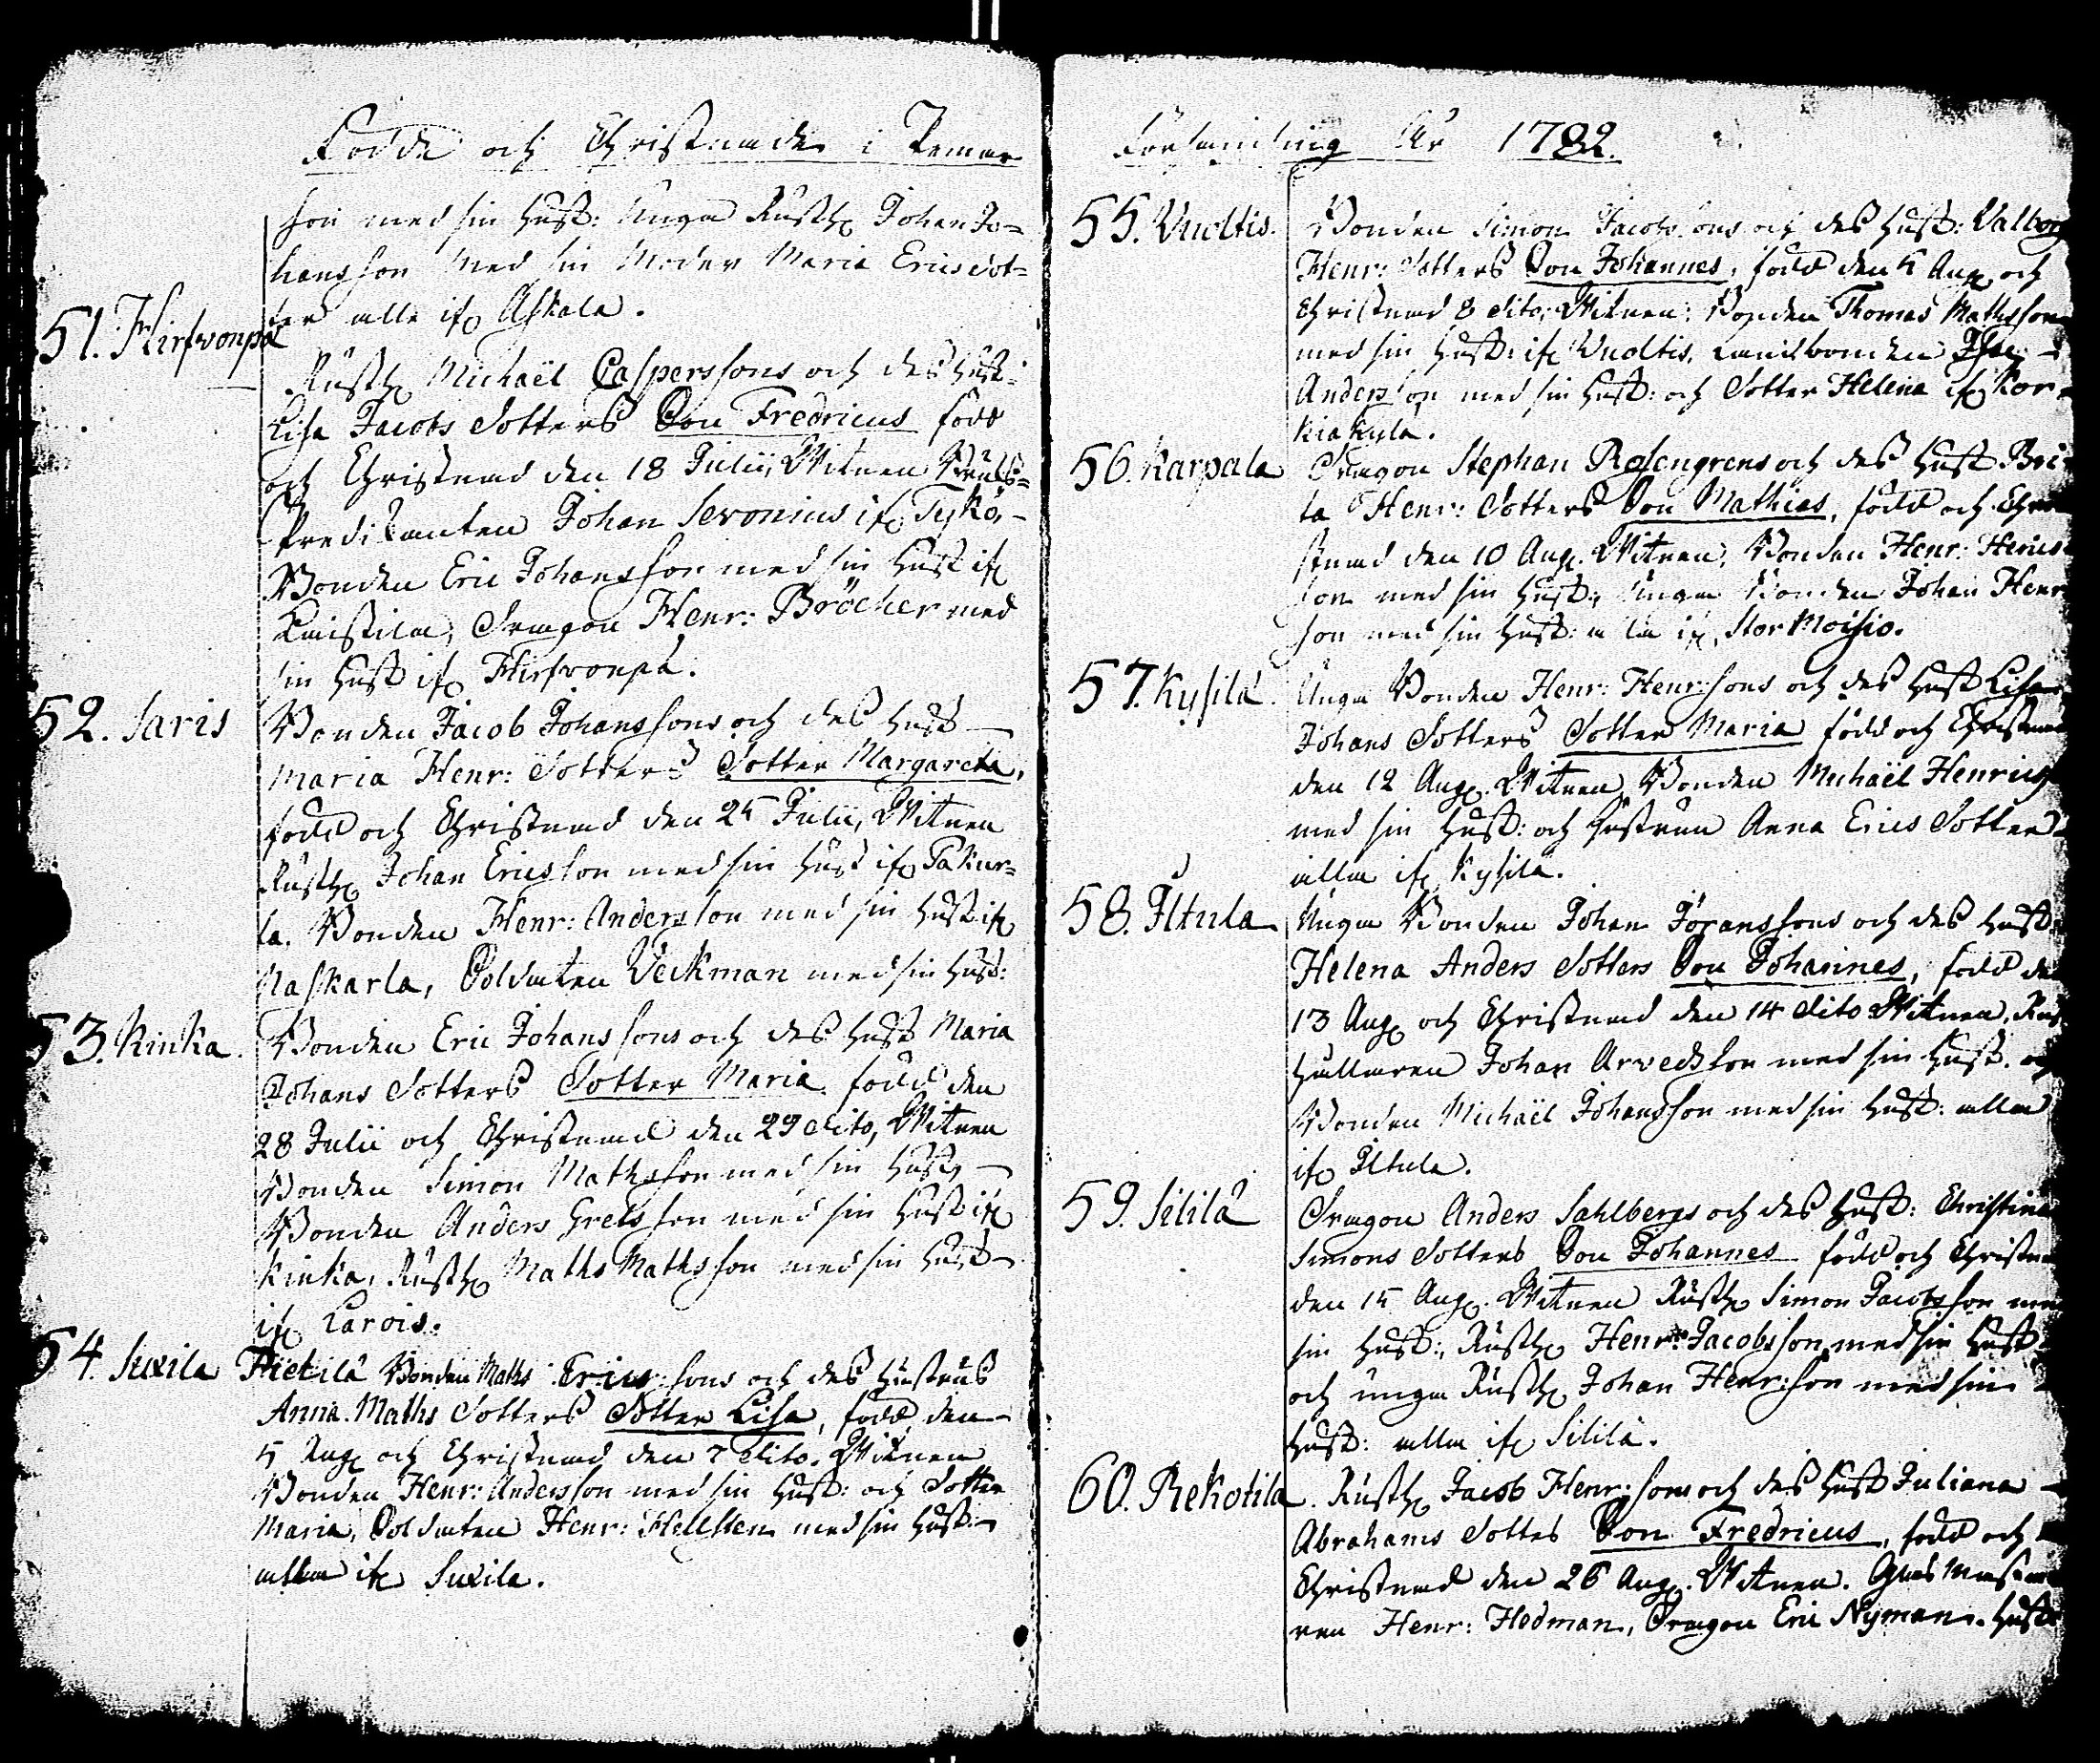 Födde och Christnade i Pemar
son med sin Hust: Unga Rusth. Johan Jo=
hansson med sin Moder Maria Ericsdot=
ter alle ifr. Askala.
51. Hirfvonpä
Rusth. Michaël Caspers sons och des Hust:
Lisa Jacobs dotters Son Fredricus född
och Christnad den 18 Julii, Witnen Bruks=
Predikanten Johan Seronius ifr. Tykö,
Bonden Eric Johansson med sin Hust ifr.
Knistila, Dragon Henr: Bröcher med
sin Hust ifr. Hirfvonpä.
52. Saris
Bonden Jacob Johanssons och des Hust
Maria Henr: dotters Dotter Margareta,
född och Christnad den 25 Julii, Witnen
Rusth. Johan Ericsson med sin Hust ifr. Pakur=
la. Bonden Henr: Andersson med sin Hust ifr.
Naskarla, Soldaten Veckman med sin Hust:
53. Kinka.
Bonden Eric Johans sons och des Hust Maria
Johans dotters Dotter Maria född den
28 Julii och Christnad den 29 dito, Witnen
Bonden Simon Mathsson med sin Hust,
Bonden Anders Grelsson med sin Hust ifr.
Kinka, Rusth. Maths Mathsson med sin Hust
ifr. Karois.
54. Suxila Pietilä Bonden Maths Erics sons och des Hustrus
Anna Maths dotters Dotter Lisa, född den
5 Aug. och Christnad den 7 dito. Witnen
Bonden Henr: Andersson med sin Hust: och Dotter
Maria, Soldaten Henr: Hellsten med sin Hust:
alla ifr. Suxila.
Församling År 1782.
55. Vuoltis.
Bonden Simon Jacobs sons och des Hust: Valborg
Henr: dotters Son Johannes, född den 5 Aug. och
Christnad 8 dito, Witnen: Bonden Thomas Mathsson
med sin Hust: ifr. Vuoltis, Landbonden
Andersson med sin Hust: och Dotter Helena ifr. Kor=
kiakyla.
56. Karpala
Dragon Stephan Rosengrens och des Hust Bri=
ta Henr: dotters Son Mathias, född och Chri
stnad den 10 Aug. Witnen, Bonden Henr: Henrics
son med sin Hust:, Unga Bonden Johan Henr
son med sin Hust: alla ifr. Stor Moisio.
57. Kysilä.
Unga Bonden Henr: Henr: sons och des Hust Lisa
Johans dotters Dotter Maria född och Christnad
den 12 Aug. Witnen Bonden Michaël Henrics
med sin Hust: och Hustrun Anna Erics dotter
alla ifr. Kysilä.
58. Iltula
Unga Bonden Johan Jöranssons och des Hust:
Helena Anders dotters Son Johannes, född den
13 Aug. och Christnad den 14 dito Witnen, Rus
hållaren Johan Arvedsson med sin Hust. och
Bonden Michaël Johansson med sin Hust: alla
ifr. Iltula.
59. Sililä
Dragon Anders Sahlbergs och des Hust: Christina
Simons dotters Son Johannes född och Christna
den 15 Aug. Witnen Rusth. Simon Jacobsson med
sin Hust:, Rusth. Henr: Jacobsson med sin Hust
och unga Rusth. Johan Henr: son med sin
Hust: alla ifr. Sililä.
60. Rekotila.
Rusth. Jacob Henr: sons och des Hust Juliana
Abrahams dottes Son Fredricus, född och
Christnad den 26 Aug. Witnen. Glas Mästa
ren Henr: Hedman, Dragon Eric Nyman. Hust